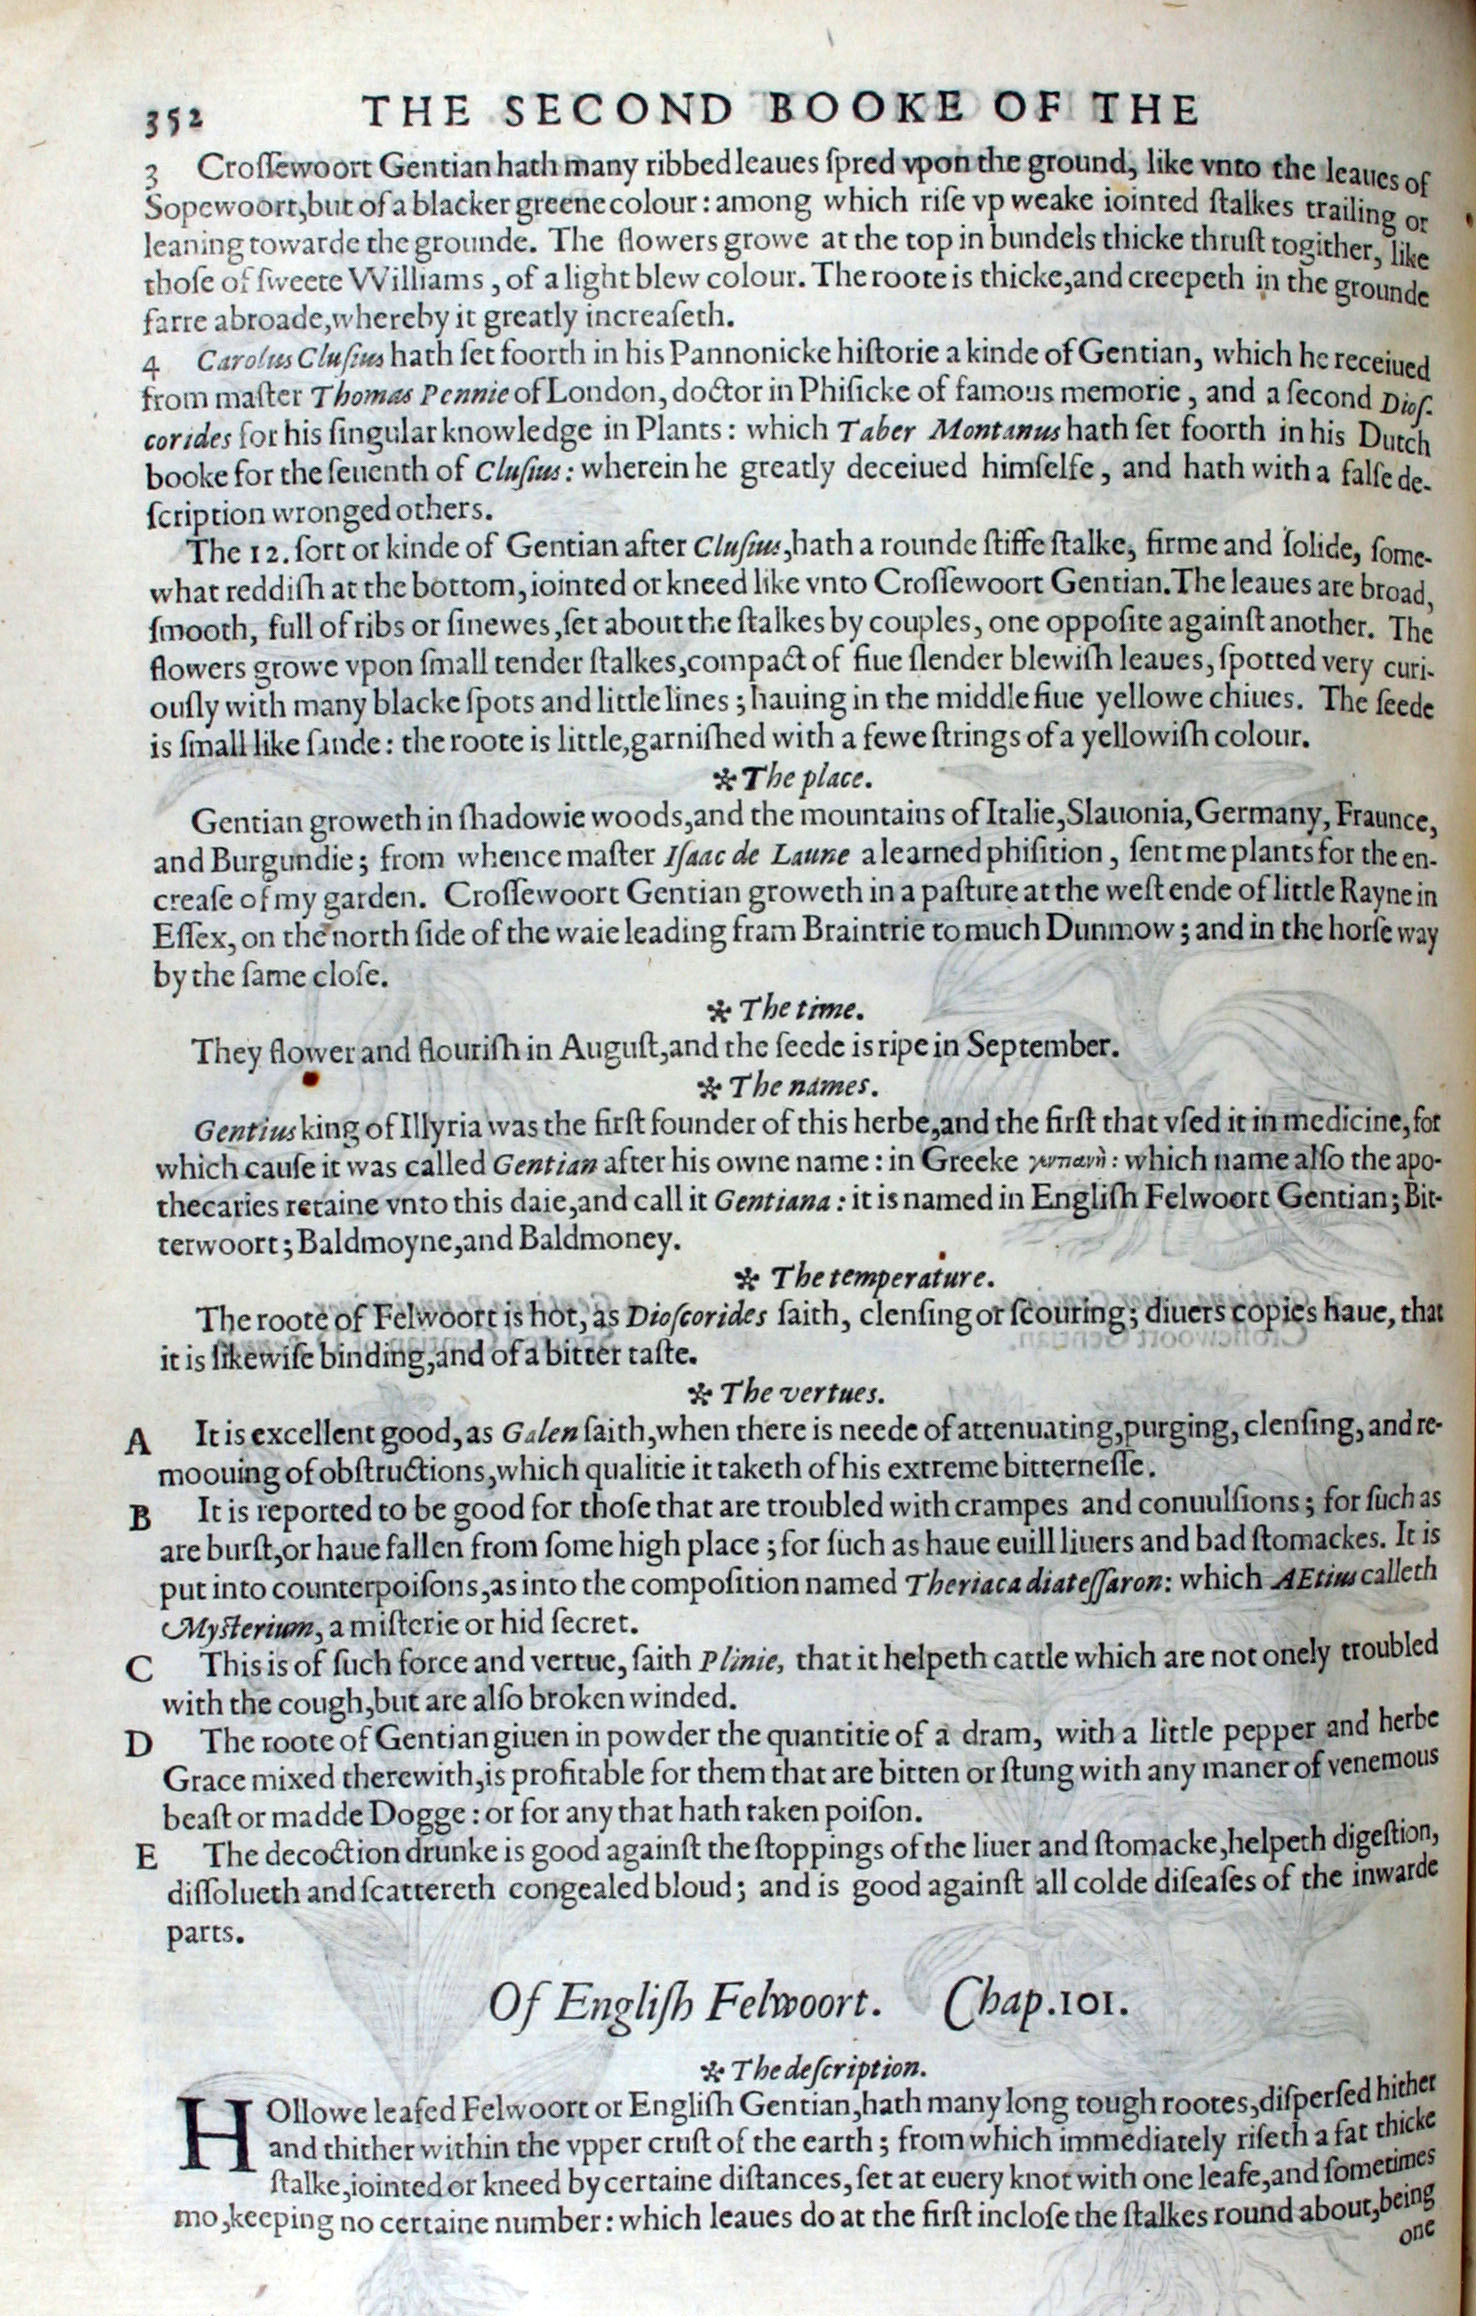 352 THE SECOND BOOKE OF THE
3 Croſſewoort Gentian hath many ribbed leaues ſpred vpon the ground, like vnto the leaues of
Sopewoort, but of a blacker greene colour: among which riſe vp weake iointed ſtalkes trailing or
leaning towarde the grounde. The flowers growe at the top in bundels thicke thruſt togither, like
thoſe of ſweete Williams, of a light blew colour. The roote is thicke, and creepeth in the grounde
farre abroade, whereby it greatly increaſeth.
4 Carolus Cluſius hath ſet foorth in his Pannonicke hiſtorie a kinde of Gentian, which he receiued
from maſter Thomas Pennie of London, doctor in Phiſicke of famous memorie, and a ſecond Dioſ-
corides for his ſingular knowledge in Plants: which Taber Montanus hath ſet foorth in his Dutch
booke for the ſeuenth of Cluſius: wherein he greatly deceiued himſelfe, and hath with a falſe de-
ſcription wronged others.
The 12. ſort or kinde of Gentian after Cluſius, hath a rounde ſtiffe ſtalke, firme and ſolide, ſome-
what reddiſh at the bottom, iointed or kneed like vnto Croſſewoort Gentian. The leaues are broad,
ſmooth, full of ribs or ſinewes, ſet about the ſtalkes by couples, one oppoſite againſt another. The
flowers growe vpon ſmall tender ſtalkes, compact of fiue ſlender blewiſh leaues, ſpotted very curi-
ouſly with many blacke ſpots and little lines; hauing in the middle fiue yellowe chiues. The ſeede
is ſmall like ſande: the roote is little, garniſhed with a fewe ſtrings of a yellowiſh colour.
✻ The place.
Gentian groweth in ſhadowie woods, and the mountains of Italie, Slauonia, Germany, Fraunce,
and Burgundie; from whence maſter Iſaac de Laune a learned phiſition, ſent me plants for the en-
creaſe of my garden. Croſſewoort Gentian groweth in a paſture at the weſt ende of little Rayne in
Eſſex, on the north ſide of the waie leading fram Braintrie to much Dunmow; and in the horſe way
by the ſame cloſe.
✻ The time.
They flower and flouriſh in Auguſt, and the ſeede is ripe in September.
✻ The names.
Gentius king of Illyria was the firſt founder of this herbe, and the firſt that vſed it in medicine, for
which cauſe it was called Gentian after his owne name: in Greeke : which name alſo the apo-
thecaries retaine vnto this daie, and call it Gentiana: it is named in Engliſh Felwoort Gentian; Bit-
terwoort; Baldmoyne, and Baldmoney.
✻ The temperature.
The roote of Felwoort is hot, as Dioſcorides ſaith, clenſing or ſcouring; diuers copies haue, that
it is likewiſe binding, and of a bitter taſte.
✻ The vertues.
A It is excellent good, as Galen ſaith, when there is neede of attenuating, purging, clenſing, and re-
moouing of obſtructions, which qualitie it taketh of his extreme bitterneſſe.
B It is reported to be good for thoſe that are troubled with crampes and conuulſions; for ſuch as
are burſt, or haue fallen from ſome high place; for ſuch as haue euill liuers and bad ſtomackes. It is
put into counterpoiſons, as into the compoſition named Theriaca diateſſaron: which AEtius calleth
Myſterium, a miſterie or hid ſecret.
C This is of ſuch force and vertue, ſaith Plinie, that it helpeth cattle which are not onely troubled
with the cough, but are alſo broken winded.
D The roote of Gentian giuen in powder the quantitie of a dram, with a little pepper and herbe
Grace mixed therewith, is profitable for them that are bitten or ſtung with any maner of venemous
beaſt or madde Dogge: or for any that hath taken poiſon.
E The decoction drunke is good againſt the ſtoppings of the liuer and ſtomacke, helpeth digeſtion,
diſſolueth and ſcattereth congealed bloud; and is good againſt all colde diſeaſes of the inwarde
parts.
Of Engliſh Felwoort. Chap. 101.
✻ The deſcription.
HOllowe leafed Felwoort or Engliſh Gentian, hath many long tough rootes, diſperſed hither
and thither within the vpper cruſt of the earth; from which immediately riſeth a fat thicke
ſtalke, iointed or kneed by certaine diſtances, ſet at euery knot with one leafe, and ſometimes
mo, keeping no certaine number: which leaues do at the firſt incloſe the ſtalkes round about, being
one